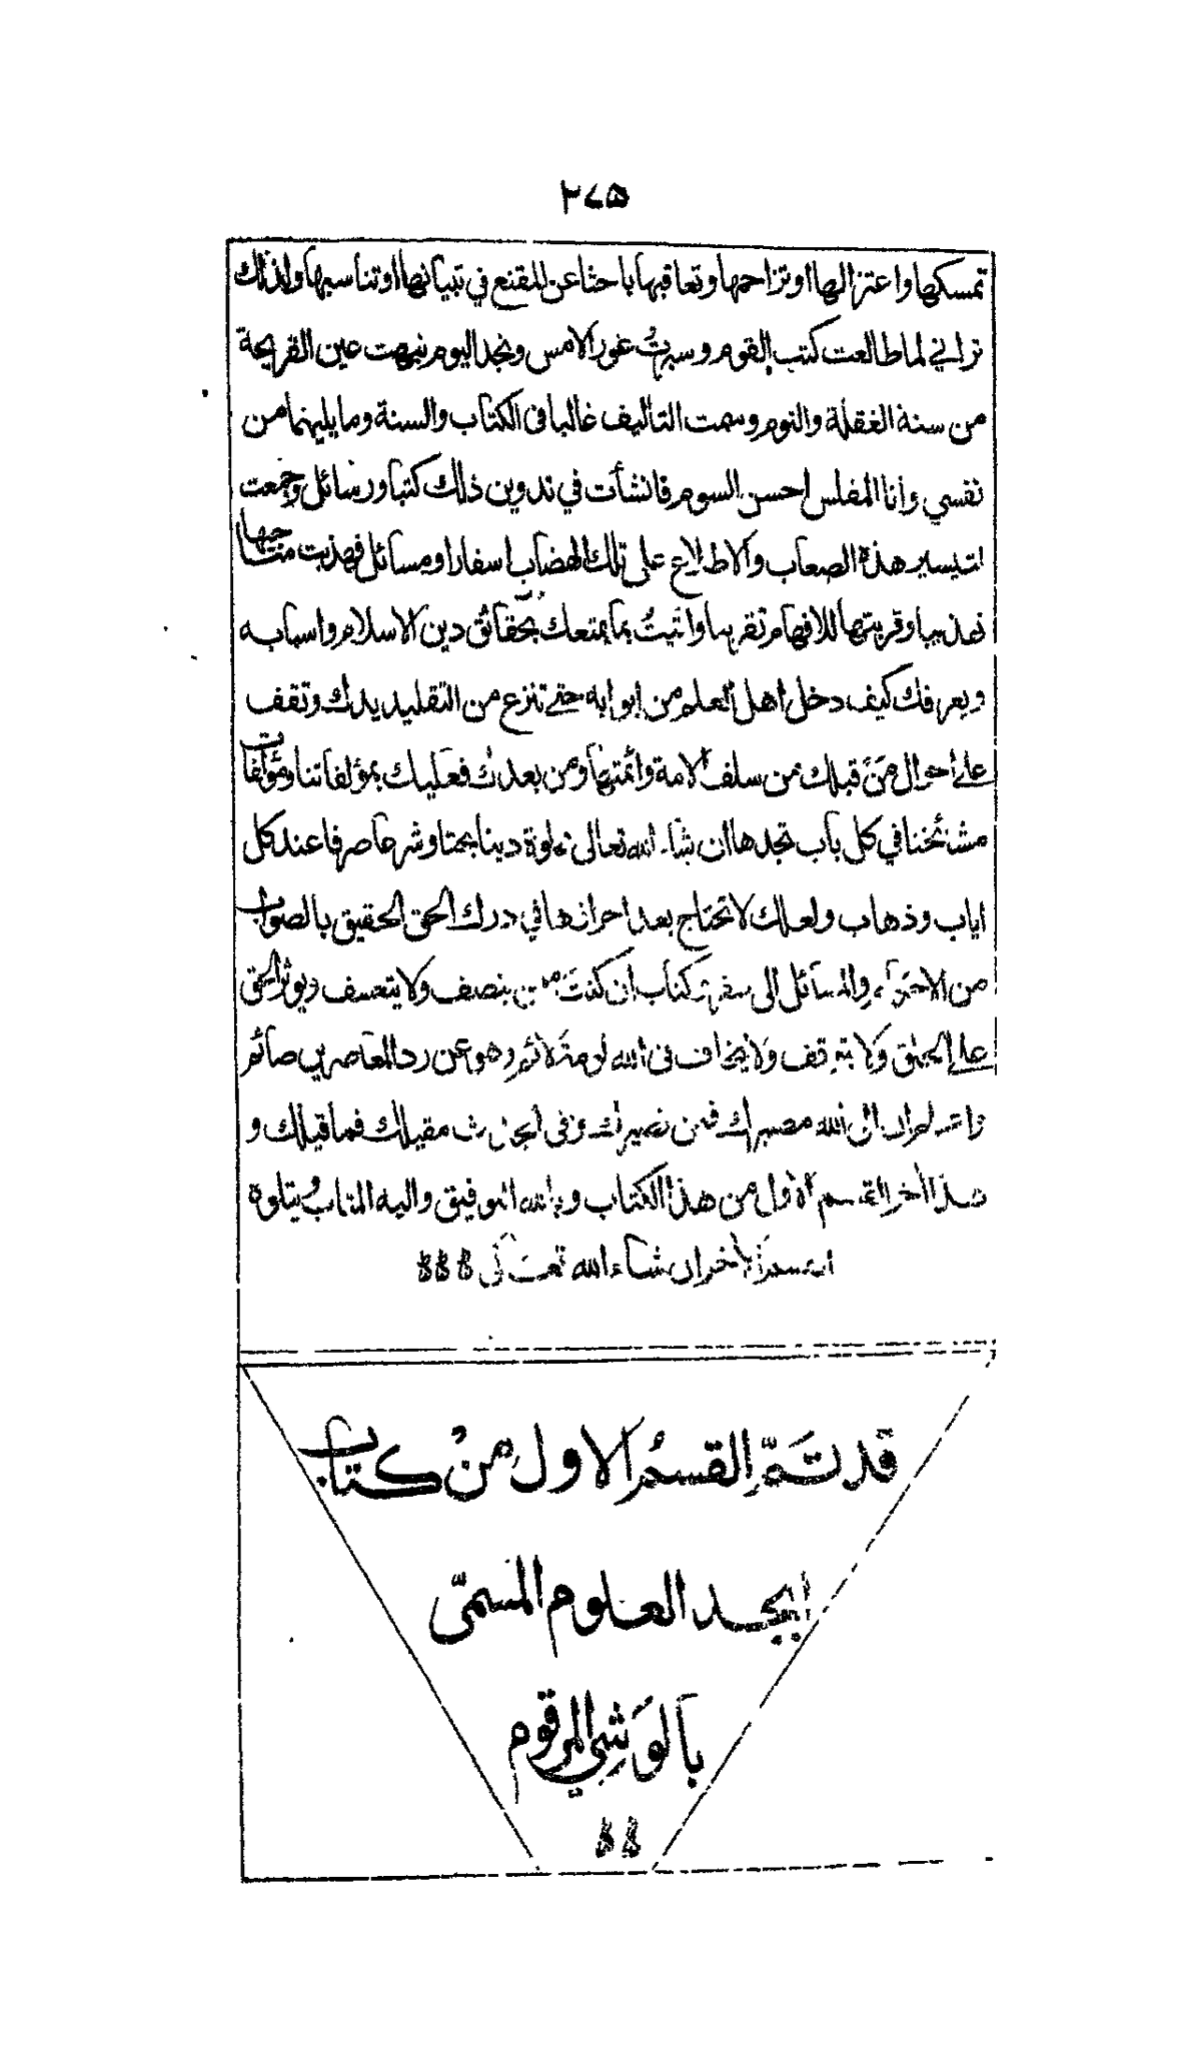 ٢٧٥
تمسكها واعتزالها او تزاحمها وتعاقبها باحثا عن المقنع في تبيانها او تناسبها ولذلك
تراني لما طالعت كتب القوم وسبرتُ غور الامس ونجد اليوم نبهت عين القريحة
من سنة الغفلة والنوم وسمت التاليف غالبا في الكتاب والسنة وما يليهما من
نفسي وانا المفلس احسن السوم فانشأت في تدوين ذلك كتبا ورسائل وجمعت
لتيسير هذه الصعاب والاطلاع على تلك الهضاب اسفارا ومسائل فهذبت مناحيها
تهذيبا وقربتها للافهام تقريبا واتيتُ بما يمتعك بحقائق دين الاسلام واسبابه
ويعرفك كيف دخل اهل العلم من ابوابه حتى تنزع من التقليد يدك وتقف
على احوال مَنْ قبلك من سلف الامة وائمتها ومن بعدك فعليك بمؤلفاتنا ومؤلفات
مشائخنا في كل باب تجدها ان شاء الله تعالى تلوة دينا بحتا وشرعا صرفا عند كل
اياب وذهاب ولعلك لا تحتاج بعد احرازها في درك الحق الحقيق بالصواب
من الاحكام والمسائل الى سفر وكتاب ان كنت ممن ينصف ولا يتعسف ويوثر الحق
على الخلق ولا يتوقف ولا يخاف في الله لومة لائم وهو عن رد المعاصرين صائم
واعلم ان الى الله مصيرك فمن نصيرك وفي الجدث مقيلك فما قيلك و
هذا اخر القسم الاول من هذا الكتاب وبالله التوفيق واليه المتاب ويتلوه
القسم الاخر ان شاء الله تعالى
قد تمّ القسم الاول من كتاب
ابجد العلوم المسمّى
بالوَشي المرقوم